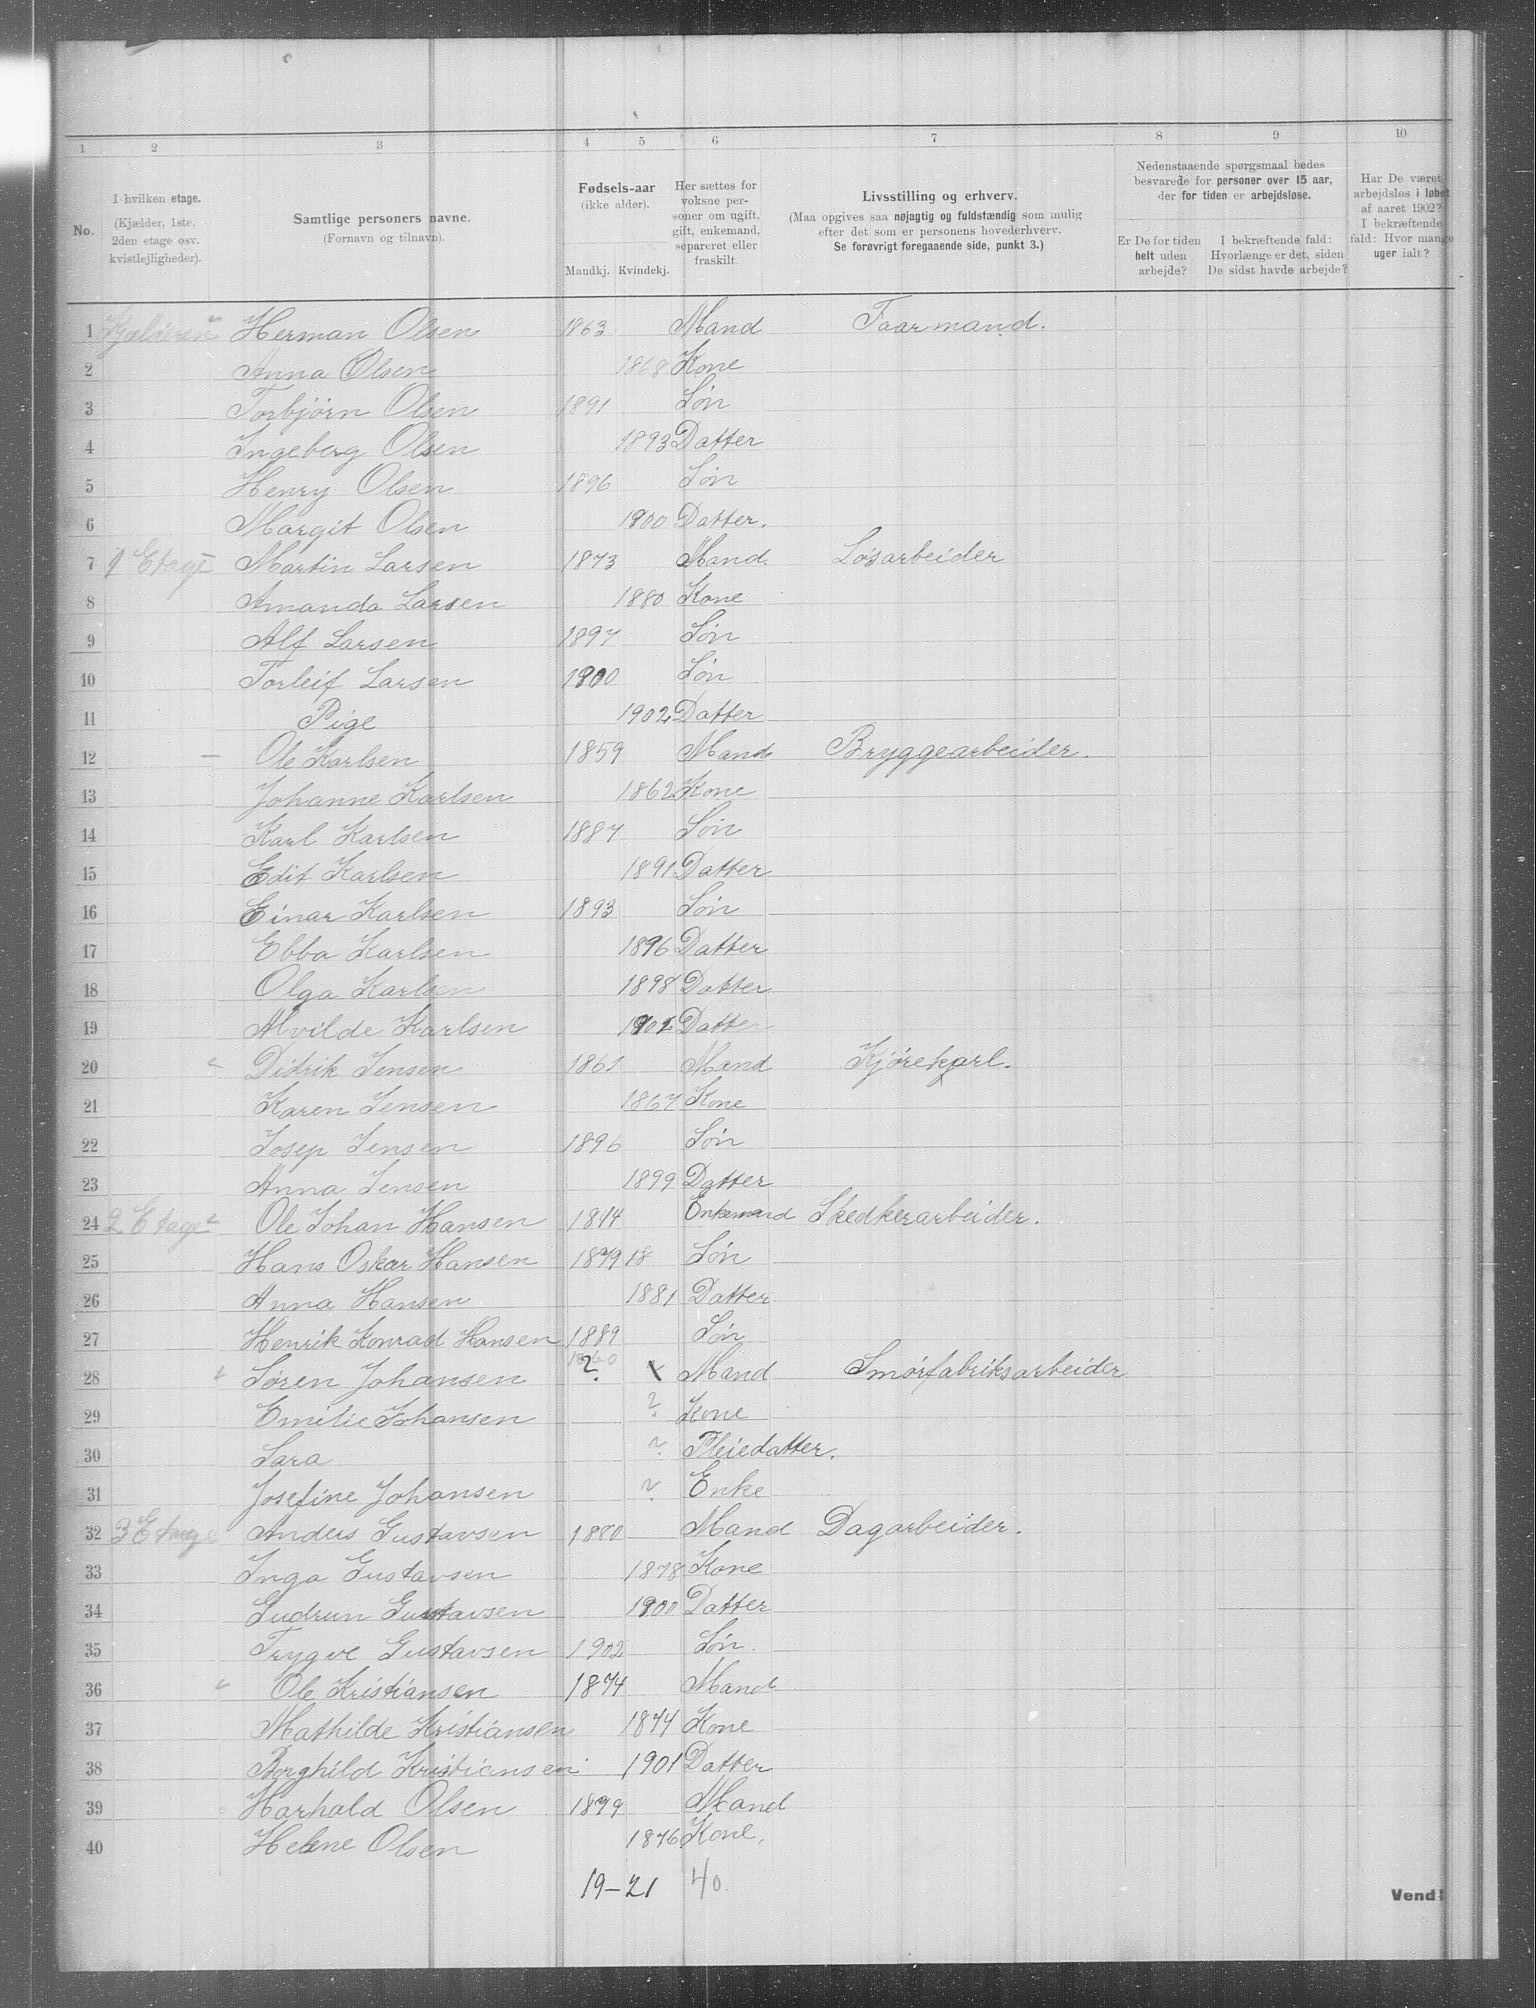 1 2 3 4 5 6 7 8 9 10
No.
I hvilken etage.
(Kjælder, 1ste.
2den etage osv.
kvistlejligheder).
Samtlige personers navne.
(Fornavn og tilnavn).
Fødsels-aar
(ikke alder).
Mandkj. Kvindekj.
Her sættes for
voksne per-
soner om ugift,
gift, enkemand,
separeret eller
fraskilt.
Livsstilling og erhverv.
(Maa opgives saa nøjagtig og fuldstændig som mulig
efter det som er personens hovederhverv.
Se forøvrigt foregaaende side, punkt 3.)
Nedenstaaende spørgsmaal bedes
besvarede for personer over 15 aar,
der for tiden er arbejdsløse.
Er De for tiden
helt uden
arbejde?
I bekræftende fald:
Hvorlænge er det, siden
De sidst havde arbejde?
Har De været
arbejdsløs i løbet
af aaret 1902?
I bekræftende
fald: Hvor mange
uger ialt?
1 Herman Olsen 1863 Mand Foarmand.
2 Anna Olsen 1868 Kone
3 Torbjörn Olsen 1891 Søn
4 Ingeberg Olsen 1893 Datter
5 Henry Olsen 1896 Søn
6 Margit Olsen 1900 Datter.
7 1 Etage Martin Larsen 1873 Mand. Løsarbeider
8 Amanda Larsen 1880 Kone
9 Alf Larsen 1897 Søn
10 Torleif Larsen 1900 Søn
11 Pige 1902 Datter
12 — Ole Karlsen 1859 Mand Bryggearbeider.
13 Johanne Karlsen 1862 Kone
14 Karl Karlsen 1887 Søn
15 Edit Karlsen 1891 Datter
16 Einar Karlsen 1893 Søn
17 Ebba Karlsen 1896 Datter
18 Olga Karlsen 1898 Datter
19 Alvilde Karlsen Datter
20 " Didrik Jensen 1861 Mand Kjørekarl.
21 Karen Jensen 1867 Kone
22 Josep Jensen 1896 Søn
23 Anna Jensen 1899 Datter
24 2 Etage Ole Johan Hansen 1844 Enkemand Skedkerarbeider.
25 Hans Oskar Hansen 1879 18 Søn
26 Anna Hansen 1881 Datter
27 Henrik Konrad Hansen 1889 Søn
28 " Søren Johansen 1860 ? Mand Smörfabriksarbeider
29 Emilie Johansen ? Kone
30 Sara ? Pleiedatter.
31 Josefine Johansen ? Enke
32 3 Etage Anders Gustavsen 1880 Mand Dagarbeider.
33 Inga Gustavsen 1878 Kone
34 Gudrun Gustavsen 1900 Datter
35 Trygve Gustavsen 1902 Søn.
36 " Ole Kristiansen 1874 Mand
37 Mathilde Kristiansen 1877 Kone
38 Borghild Kristiansen 1901 Datter
39 Harhald Olsen 1879 Mand
40 Helene Olsen 1876 Kone.
19-21 40
Vend!